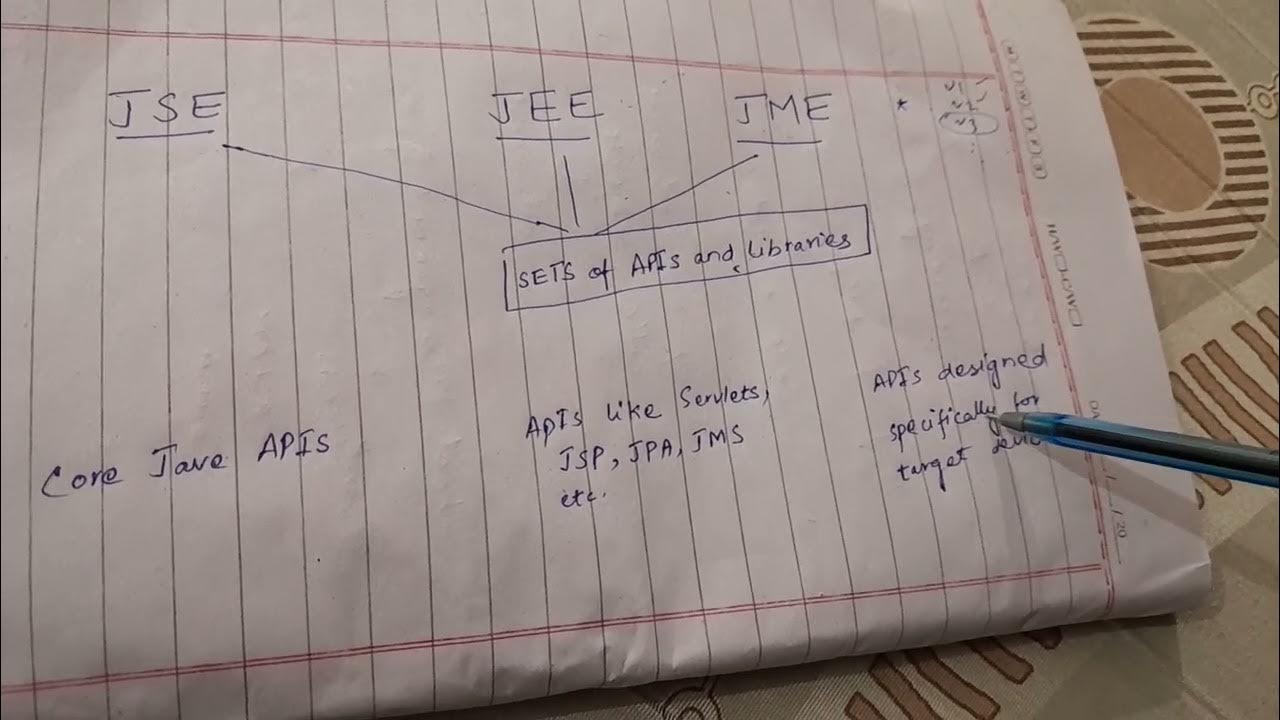 JSE JEE JME *
v1
v2
v3
SETS of APIs and Libraries
Core Jave APIS
APIs like Servlets,
JSP, JPA, JMS
etc.
APIs designed
specifically for
target
/ 20